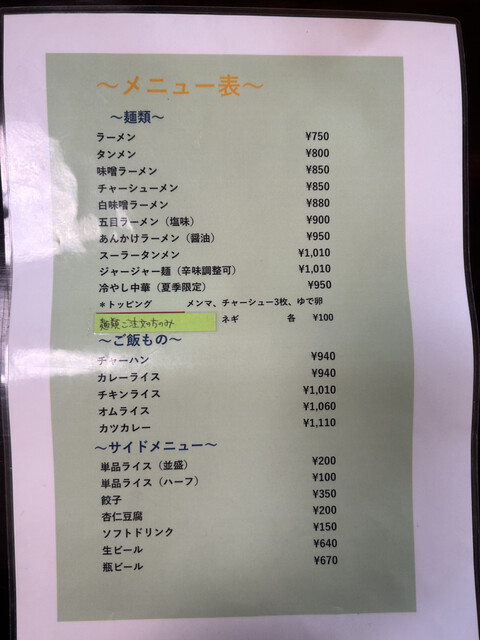 ～メニュー表～
～麺類～
ラーメン ¥750
タンメン ¥800
味噌ラーメン ¥850
チャーシューメン ¥850
白味噌ラーメン ¥880
五目ラーメン（塩味） ¥900
あんかけラーメン（醤油） ¥950
スーラータンメン ¥1,010
ジャージャー麺（辛味調整可） ¥1,010
冷やし中華（夏季限定） ¥950
＊トッピング メンマ、チャーシュー3枚、ゆで卵
麺類ご注文の方のみ ネギ 各 ¥100
～ご飯もの～
チャーハン ¥940
カレーライス ¥940
チキンライス ¥1,010
オムライス ¥1,060
カツカレー ¥1,110
～サイドメニュー～
単品ライス（並盛） ¥200
単品ライス（ハーフ） ¥100
餃子 ¥350
杏仁豆腐 ¥200
ソフトドリンク ¥150
生ビール ¥640
瓶ビール ¥670